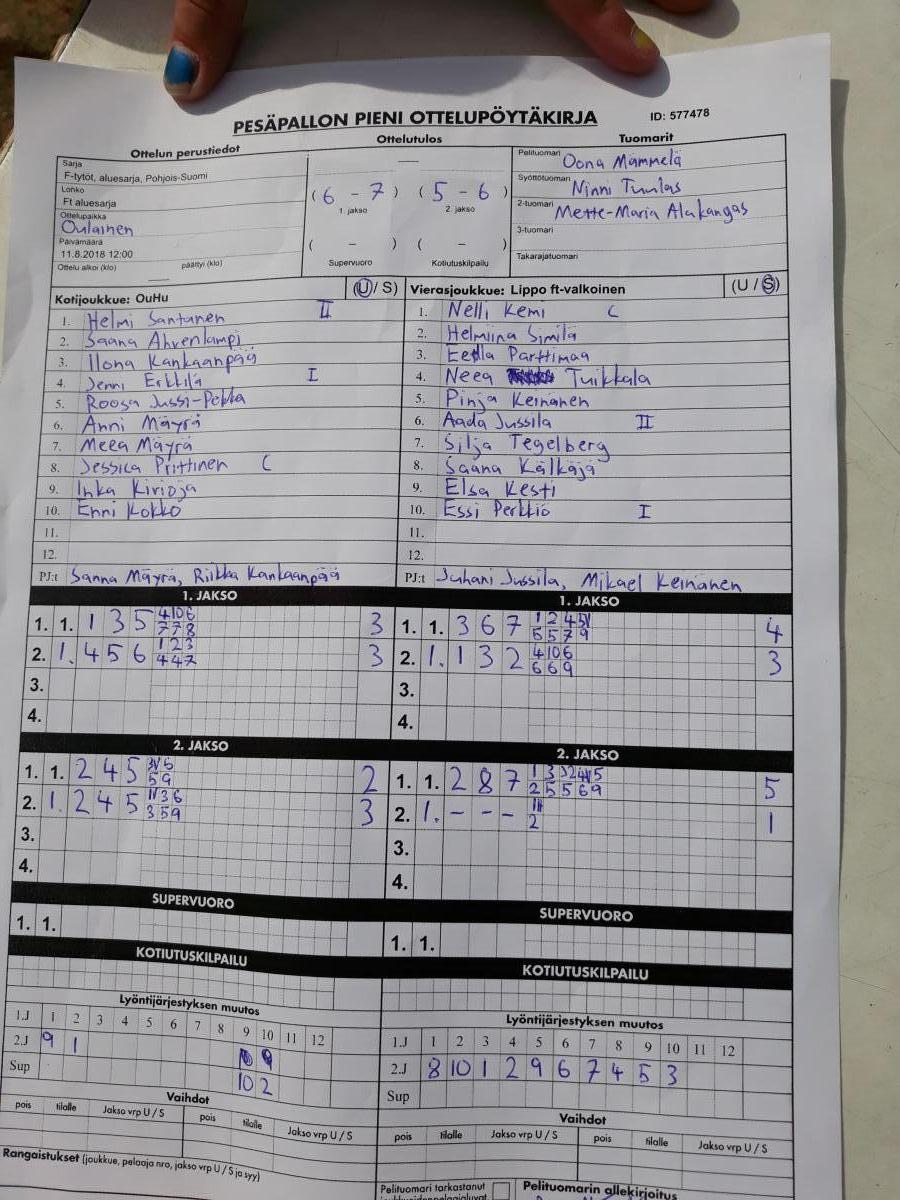 PESÄPALLON PIENI OTTELUPÖYTÄKIRJA ID: 577478
Ottelun perustiedot Ottelutulos Tuomarit
Sarja
F-tytöt, aluesarja, Pohjois-Suomi
Lohko
Ft aluesarja
Ottelupaikka
Oulainen
Päivämäärä
11.8.2018 12:00
Ottelu alkoi (klo) päättyi (klo)
( 6 - 7 ) ( 5 - 6 )
1. jakso 2. jakso
( - ) ( - )
Supervuoro Kotiutuskilpailu
Pelituomari Oona Mämmelä
Syöttötuomari Ninni Tuulas
2-tuomari Mette-Maria Alakangas
3-tuomari
Takarajatuomari
Kotijoukkue: OuHu (U / S)
1. Helmi Santanen II
2. Saana Ahvenlampi
3. Ilona Kankaanpää
4. Jenni Erkkilä I
5. Roosa Jussi-Pekka
6. Anni Mäyrä
7. Meea Mäyrä
8. Jessica Prittinen C
9. Inka Kirioja
10. Enni Kokko
11.
12.
PJ:t Sanna Mäyrä, Riikka Kankaanpää
Vierasjoukkue: Lippo ft-valkoinen (U / S)
1. Nelli Kemi C
2. Helmiina Similä
3. Eedla Parttimaa
4. Neea Tuikkala
5. Pinja Keinänen
6. Aada Jussila II
7. Silja Tegelberg
8. Saana Kälkäjä
9. Elsa Kesti
10. Essi Perkkiö I
11.
12.
PJ:t Juhani Jussila, Mikael Keinänen
1. JAKSO
1. 1. 1 3 5 4 10 6 7 7 8 3
2. 1. 4 5 6 1 2 3 4 4 7 3
3.
4.
1. JAKSO
1. 1. 3 6 7 1 2 4 5 5 7 9 4
2. 1. 1 3 2 4 10 6 6 6 9 3
3.
4.
2. JAKSO
1. 1. 2 4 5 5 9 2
2. 1. 2 4 5 3 6 3 5 9 3
3.
4.
2. JAKSO
1. 1. 2 8 7 2 5 5 6 9 5
2. 1. - - - 2 1
3.
4.
SUPERVUORO
1. 1.
SUPERVUORO
1. 1.
KOTIUTUSKILPAILU
KOTIUTUSKILPAILU
Lyöntijärjestyksen muutos
1.J 1 2 3 4 5 6 7 8 9 10 11 12
2.J 9 1
Sup 10 2
Lyöntijärjestyksen muutos
1.J 1 2 3 4 5 6 7 8 9 10 11 12
2.J 8 10 1 2 9 6 7 4 5 3
Sup
Vaihdot
pois tilalle Jakso vrp U / S pois tilalle Jakso vrp U / S
Vaihdot
pois tilalle Jakso vrp U / S pois tilalle Jakso vrp U / S
Rangaistukset (joukkue, pelaaja nro, jakso vrp U / S ja syy)
Pelituomari tarkastanut
Pelituomarin allekirjoitus